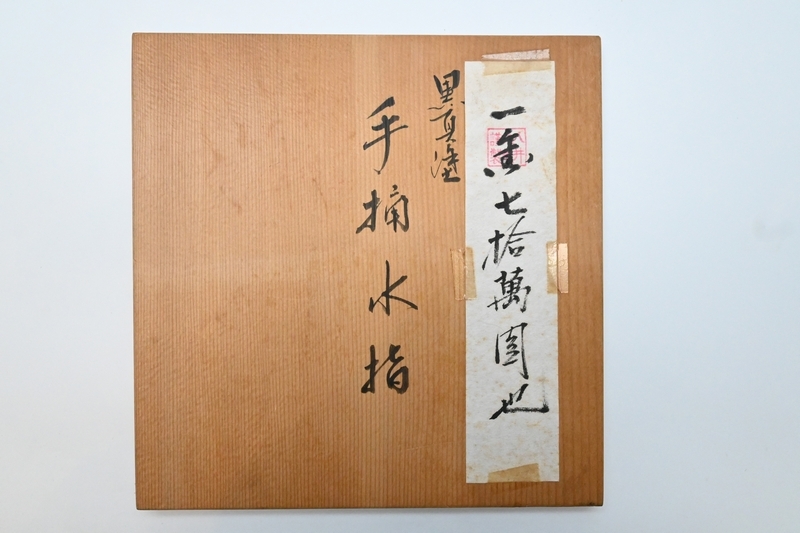 一金七拾萬圓也
黒真塗
手桶水指